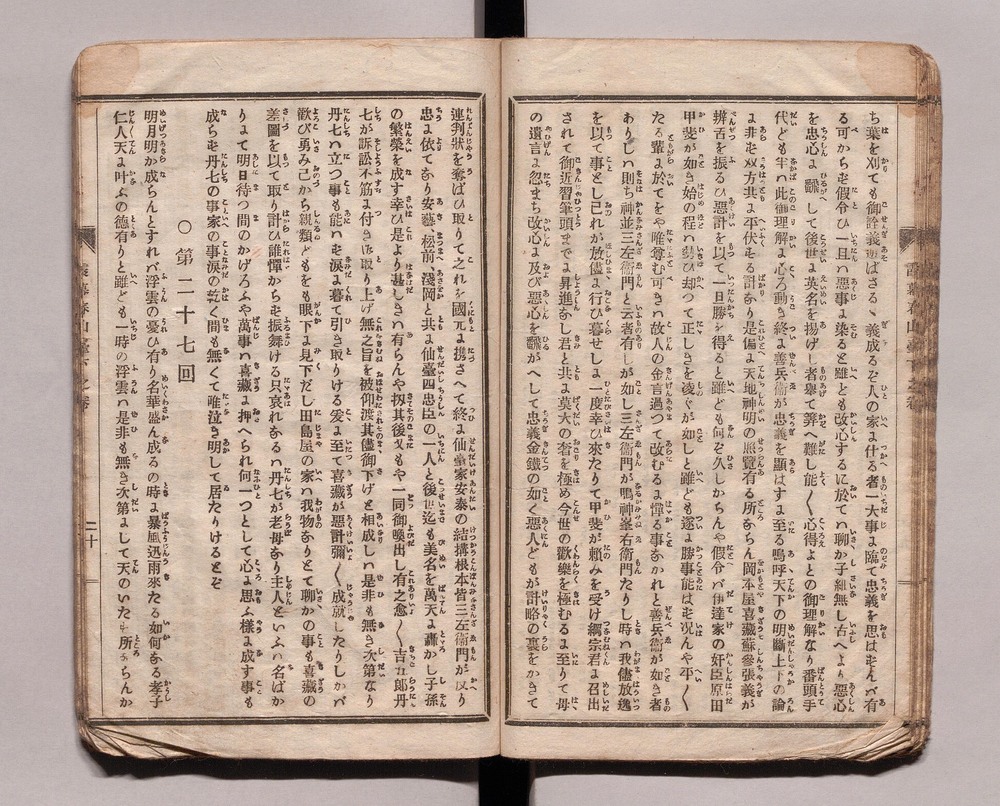 ち葉を刈ても御詮義遊ばさるゝ義成るぞ人の家に仕る者一大事に臨て忠義を思はずんバ有
る可からず假令ひ一旦ハ悪事に染ると雖とも改心するに於てハ聊か子細無し古へより悪心
を忠心に飜へして後世に英名を揚げし者舉て筭へ難し能く〳〵心得よとの御理解なり番頭手
代ども半ハ此御理解に心ろ動き終に善兵衞が忠義を顯はすに至る嗚呼天下の明斷上下の論
に非ず双方共に平伏せる計り是偏に天地神明の照覽有る所ならん岡本屋喜藏蘇參張義が
辨舌を振るひ悪計を以て一旦勝を得ると雖ども何ぞ久しからんや假令バ伊達家の奸臣原田
甲斐が如き始の程ハ勢ひ却つて正しきを凌ぐが如しと雖ども遂に勝事能はず况んや平〳〵
たる輩に於てをや唯尊む可きハ故人の金言過つて改むるに憚る事なかれと善兵衞が如き者
ありしハ則ち神並三左衞門と云者有しが如し三左衞門が鴫神峯右衞門たりし時ハ我儘放逸
を以て事とし己れが放儘に行ひ暮せしに一度幸ひ來たりて甲斐が頼みを受け綱宗君に召出
されて御近習筆頭までに昇進なし君と共に莫大の奢を極め今世の歡樂を極むるに至りて母
の遺言に忽まち改心に及び悪心を飜がへして忠義金鐵の如く悪人どもが計略の裏をかきて
連判状を奪ひ取りて之れを國元に携さへて終に仙臺家安泰の結構根本皆三左衞門が反り
忠に依てなり安藝、松前、淺岡と共に仙臺四忠臣の一人と後世迄も美名を萬天に轟かし子孫
の繁榮を成す幸ひ是より甚しきハ有らんや扨其後又もや一同御喚出し有之愈〳〵吉五郎丹
七が訴訟不筋に付き取り上げ無之旨を被仰渡其儘御下げと相成しハ是非も無き次第なり
丹七ハ立つ事も能はず涙に暮て引き取りける爰に至て喜藏が悪計彌〳〵成就したりしかバ
歡び勇み己から親類どもをも眼下に見下だし田島屋の家ハ我物なりとて聊かの事も喜藏の
差圖を以て取り計ひ誰憚から
ず振舞ける只哀れなるハ丹七が老母なり主人といふハ名ばか
りにて明日待つ間のかげろふや萬事ハ喜藏に押へられ何一つとして心に思ふ樣に成す事も
成らず丹七の事家の事涙の乾く間も無くて唯泣き明して居たりけるとぞ
○第二十七回
明月明か成らんとすれバ浮雲の憂ひ有り名華盛ん成るの時に暴風迅雨來たる如何なる孝子
仁人天に叶ふの德有りと雖ども一時の浮雲ハ是非も無き次第にして天のいたす所ならんか
二十